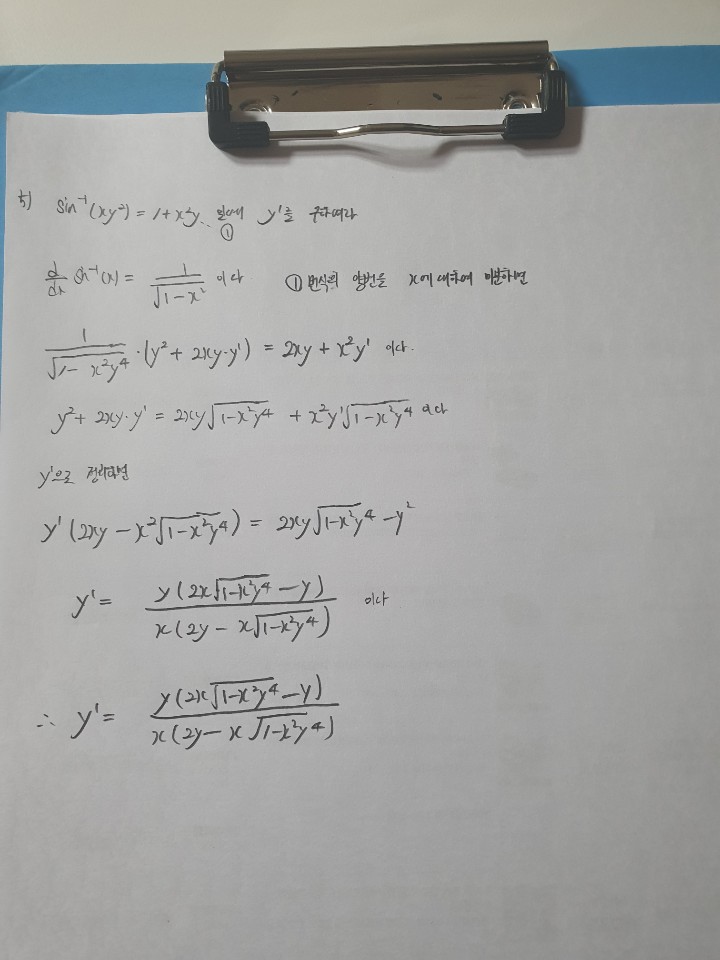 5) sin⁻¹(xy²) = 1+x²y 일때 y'를 구하여라
①
d/dx sin⁻¹(x) = 1/√(1-x²) 이다 ① 변식의 양변을 x에 대하여 미분하면
1/√(1-x²y⁴) · (y² + 2xy·y') = 2xy + x²y' 이다.
y² + 2xy·y' = 2xy√(1-x²y⁴) + x²y'√(1-x²y⁴) 이다
y'으로 정리하면
y'(2xy - x²√(1-x²y⁴)) = 2xy√(1-x²y⁴) - y²
y' = y(2x√(1-x²y⁴) - y) / x(2y - x√(1-x²y⁴)) 이다
∴ y' = y(2x√(1-x²y⁴) - y) / x(2y - x√(1-x²y⁴))